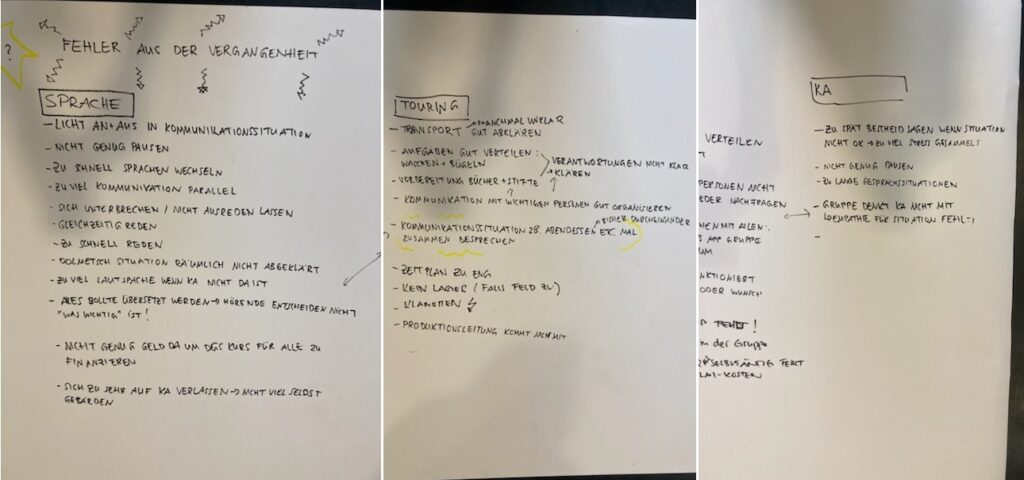 ?
FEHLER AUS DER VERGANGENHEIT
SPRACHE
- LICHT AN + AUS IN KOMMUNIKATIONSSITUATION
- NICHT GENUG PAUSEN
- ZU SCHNELL SPRACHEN WECHSELN
- ZU VIEL KOMMUNIKATION PARALLEL
- SICH UNTERBRECHEN / NICHT AUSREDEN LASSEN
- GLEICHZEITIG REDEN
- ZU SCHNELL REDEN
- DOLMETSCH SITUATION RÄUMLICH NICHT ABGEKLÄRT
- ZU VIEL LAUTSPACHE WENN KA NICHT DA IST
- ALLES SOLLTE ÜBERSETZT WERDEN → HÖRENDE ENTSCHEIDEN NICHT
"WAS WICHTIG" IST!
- NICHT GENUG GELD DA UM DGS KURS FÜR ALLE ZU
FINANZIEREN
- SICH ZU SEHR AUF KA VERLASSEN → NICHT VIEL SELBST
GEBÄRDEN
TOURING
→ MANCHMAL UNKLAR
- TRANSPORT GUT ABKLÄREN
- AUFGABEN GUT VERTEILEN:
WASCHEN + BÜGELN
VERANTWORTUNGEN NICHT KLAR
→ KLÄREN
- VORBEREITUNG BÜCHER + STIFTE
?
- KOMMUNIKATION MIT WICHTIGEN PERSONEN GUT ORGANISIEREN
→ BISHER DURCHEINANDER
- KOMMUNIKATIONSSITUATION ZB. ABENDESSEN ETC. MAL
ZUSAMMEN BESPRECHEN
- ZEITPLAN ZU ENG
- KEIN LAGER (FALLS FELD ZU)
- KLAMOTTEN
- PRODUKTIONSLEITUNG KOMMT NICHT MIT
VERTEILEN
PERSONEN NICHT
EDER NACHFRAGEN
CHEN MIT ALLEN:
S APP GRUPPE
UM
NKTIONIERT
ODER WUNSCH
FEHLT!
in der Gruppe
SELBSTÄNDIG FEHLT
LMI-KOSTEN
KA
- ZU SPÄT BESCHEID SAGEN WENN SITUATION
NICHT OK → ZU VIEL STRESS GESAMMELT
- NICHT GENUG PAUSEN
- ZU LANGE GESPRÄCHSSITUATIONEN
- GRUPPE DENKT KA NICHT MIT
FÜR SITUATION FEHLT
-